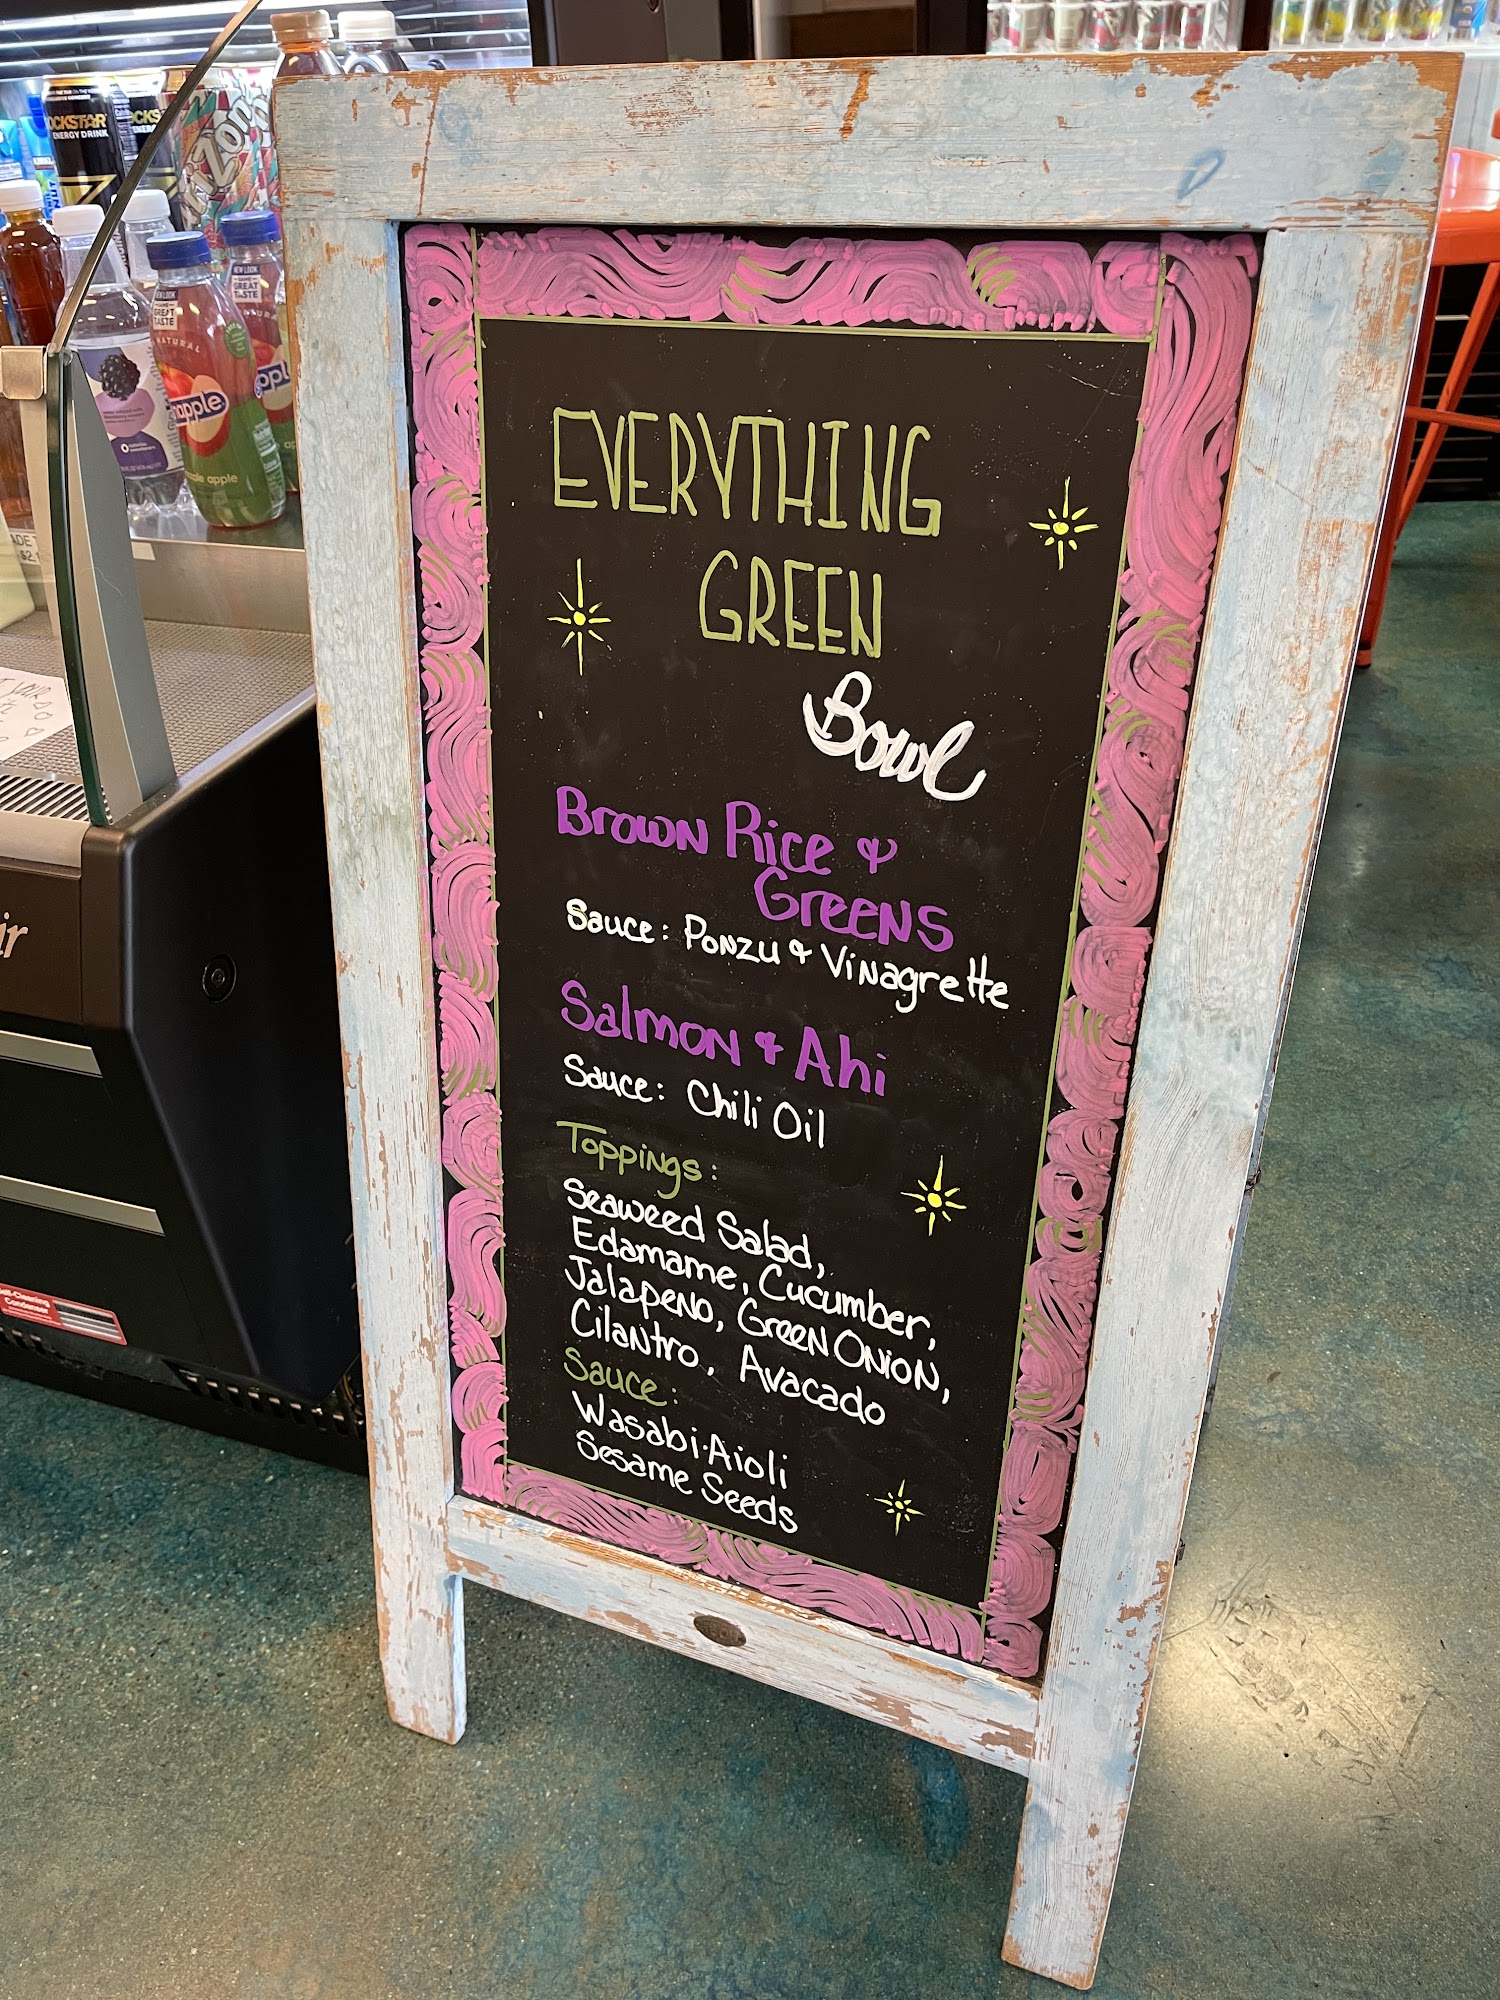 EVERYTHING
GREEN
Bowl
Brown Rice &
Greens
Sauce: Ponzu & Vinagrette
Salmon & Ahi
Sauce: Chili Oil
Toppings:
Seaweed Salad,
Edamame, Cucumber,
Jalapeno, Green Onion,
Cilantro, Avacado
Sauce:
Wasabi·Aioli
Sesame Seeds
OCKSTAR
ENERGY DRINK
NEW LOOK
GREAT
TASTE
NATURAL
apple
apple